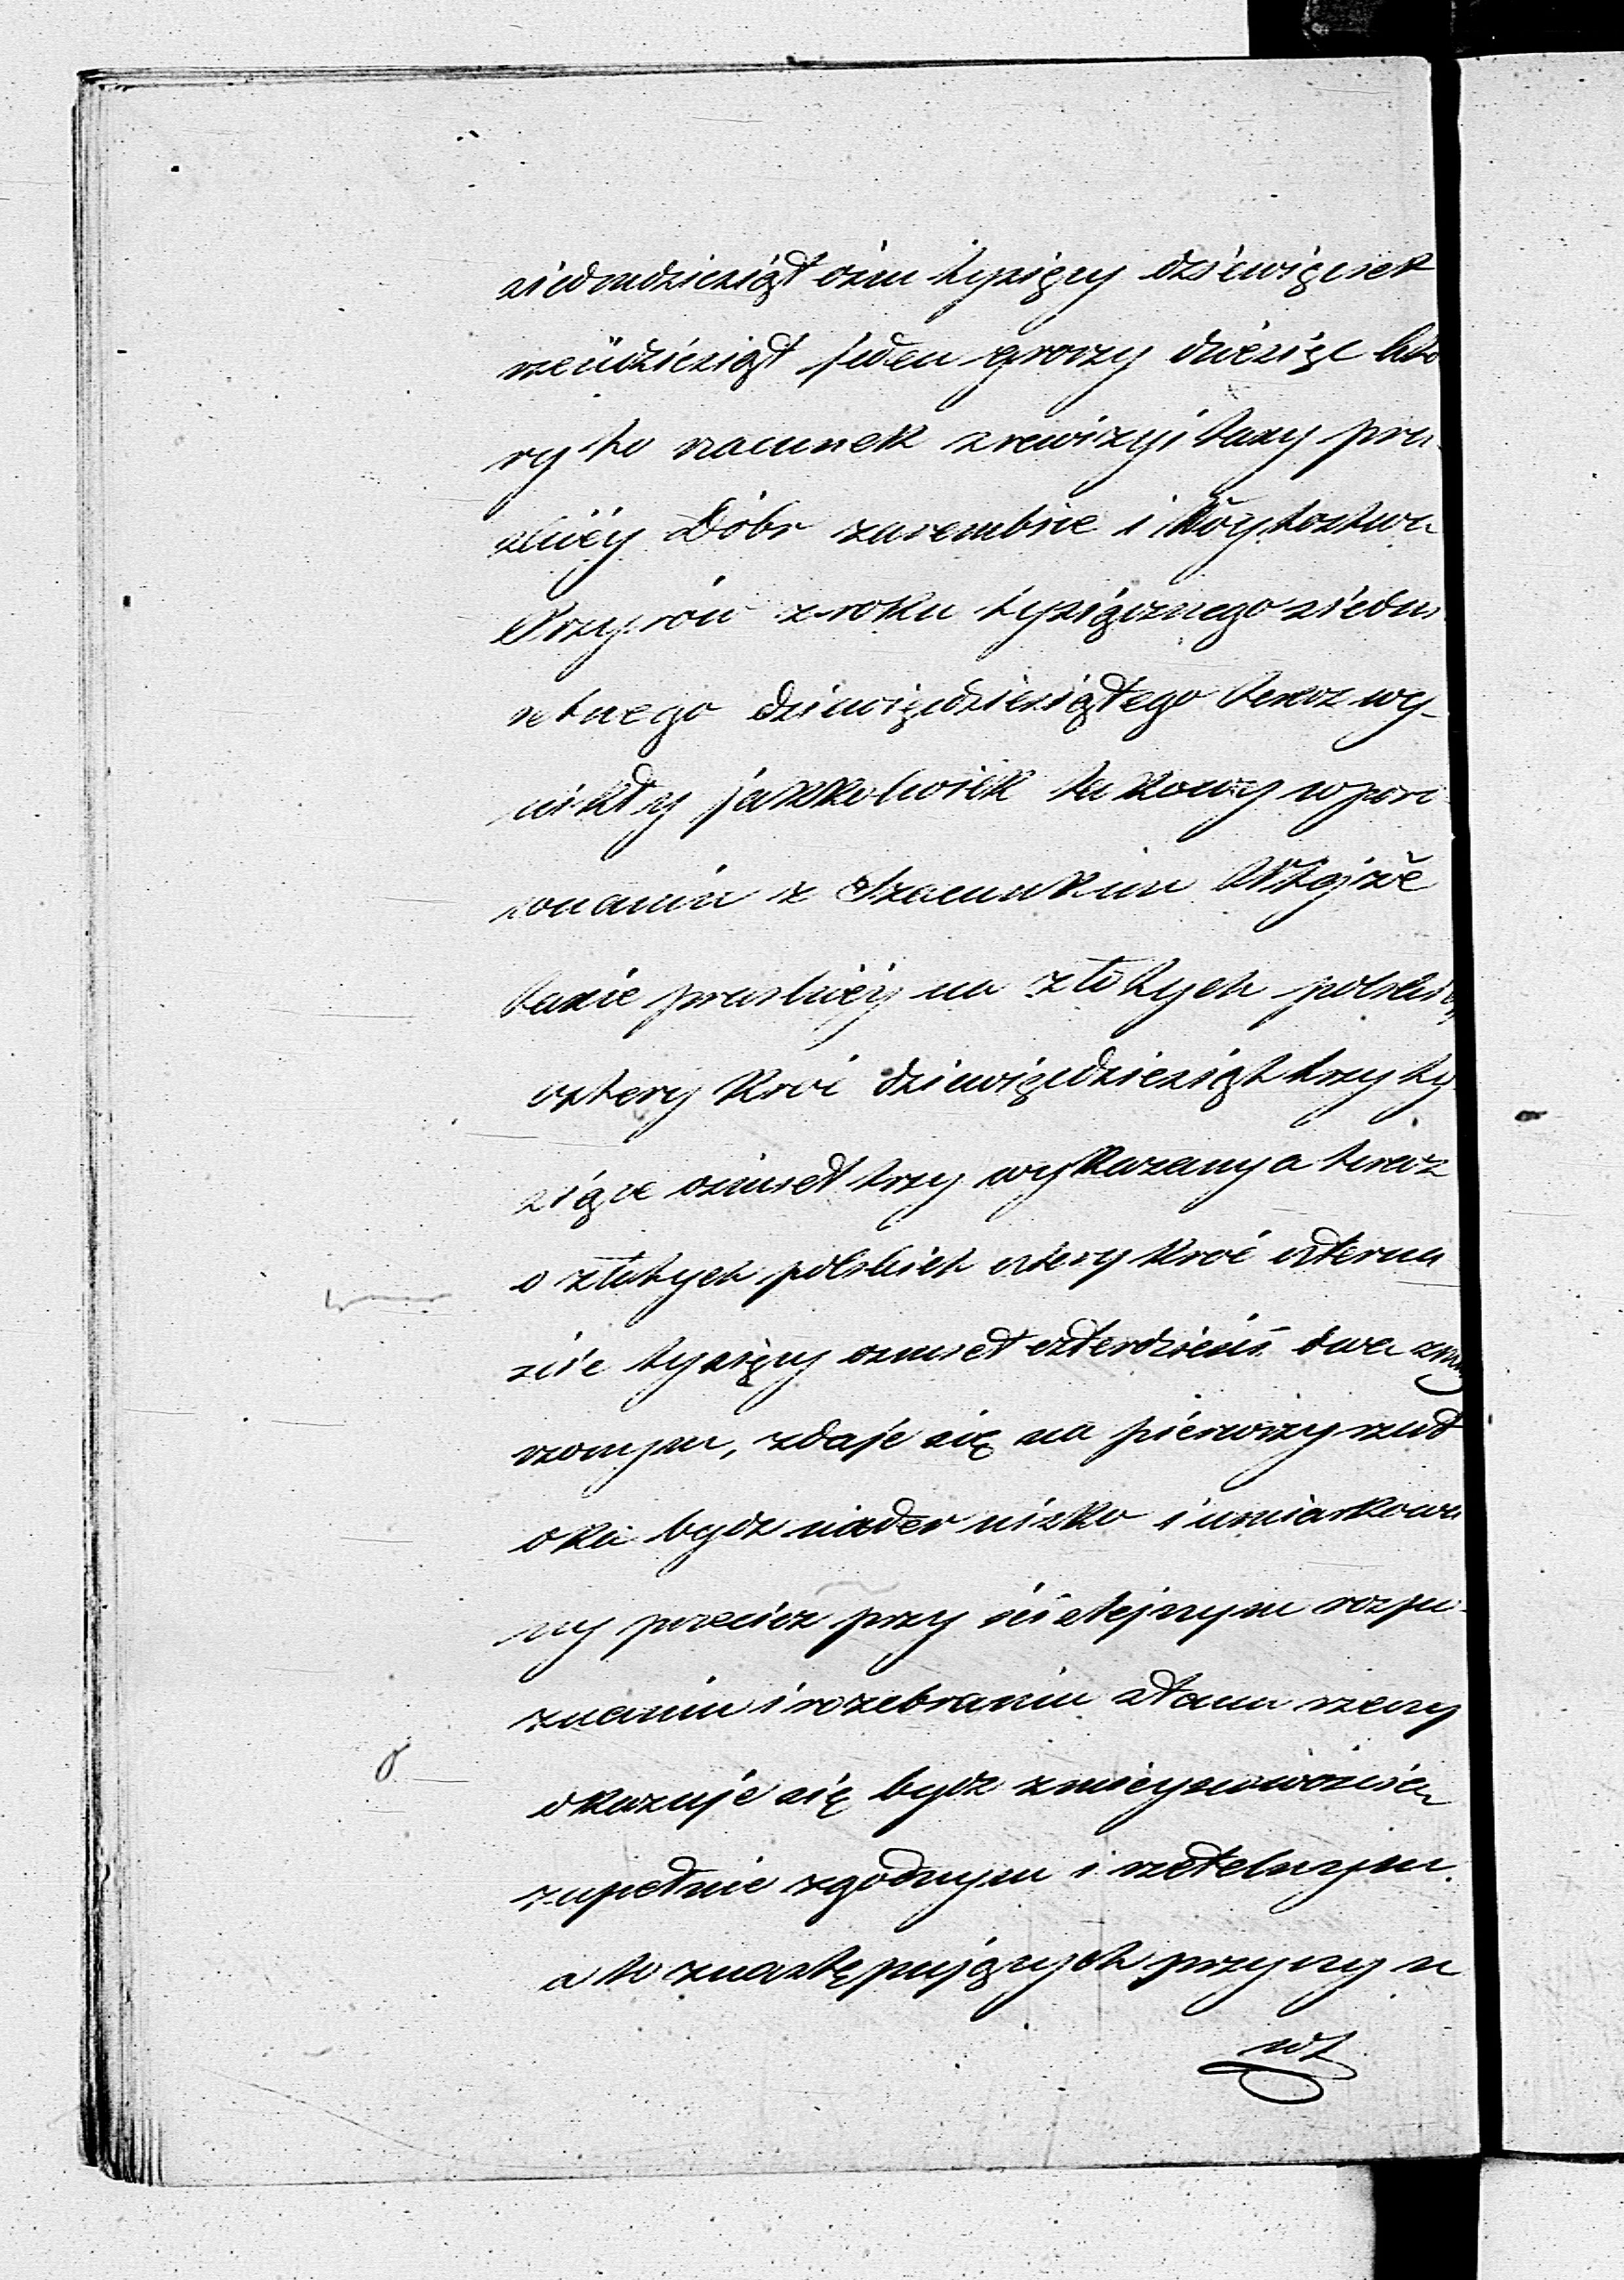 siedmdziesiąt ośm tysięcy dziewięćset
sześćdziesiąt jeden groszy dziesięć któ
ry to szacunek z rewizyi taxy pru
skiéy Dóbr Zarembice i Wóytostwa
Przyrów z roku tysiącznego siedm
setnego dziewięćdziesiątego teraz wy-
nikły jakkolwiek takowy w poró
wnaniu z Szacunkiem
taxie pruskiéy na złotych polskich
cztery kroć dziewięćdziesiąt trzy ty
siące ośmset trzy wykazany a teraz
o złotych polskich cztery kroć czterna
ście tysięcy ośmset czterdzieści dwa zmniey
szonym, zdaje się na pierwszy rzut
oka bydź nader nizko i umiarkowa
ny przecież przy ściślejszym rozpo
znaniu i rozebraniu stanu rzeczy
okazuje się bydź z mieyscowością
zupełnie zgodnym i rzetelnym.
a to z następujących przyczyn